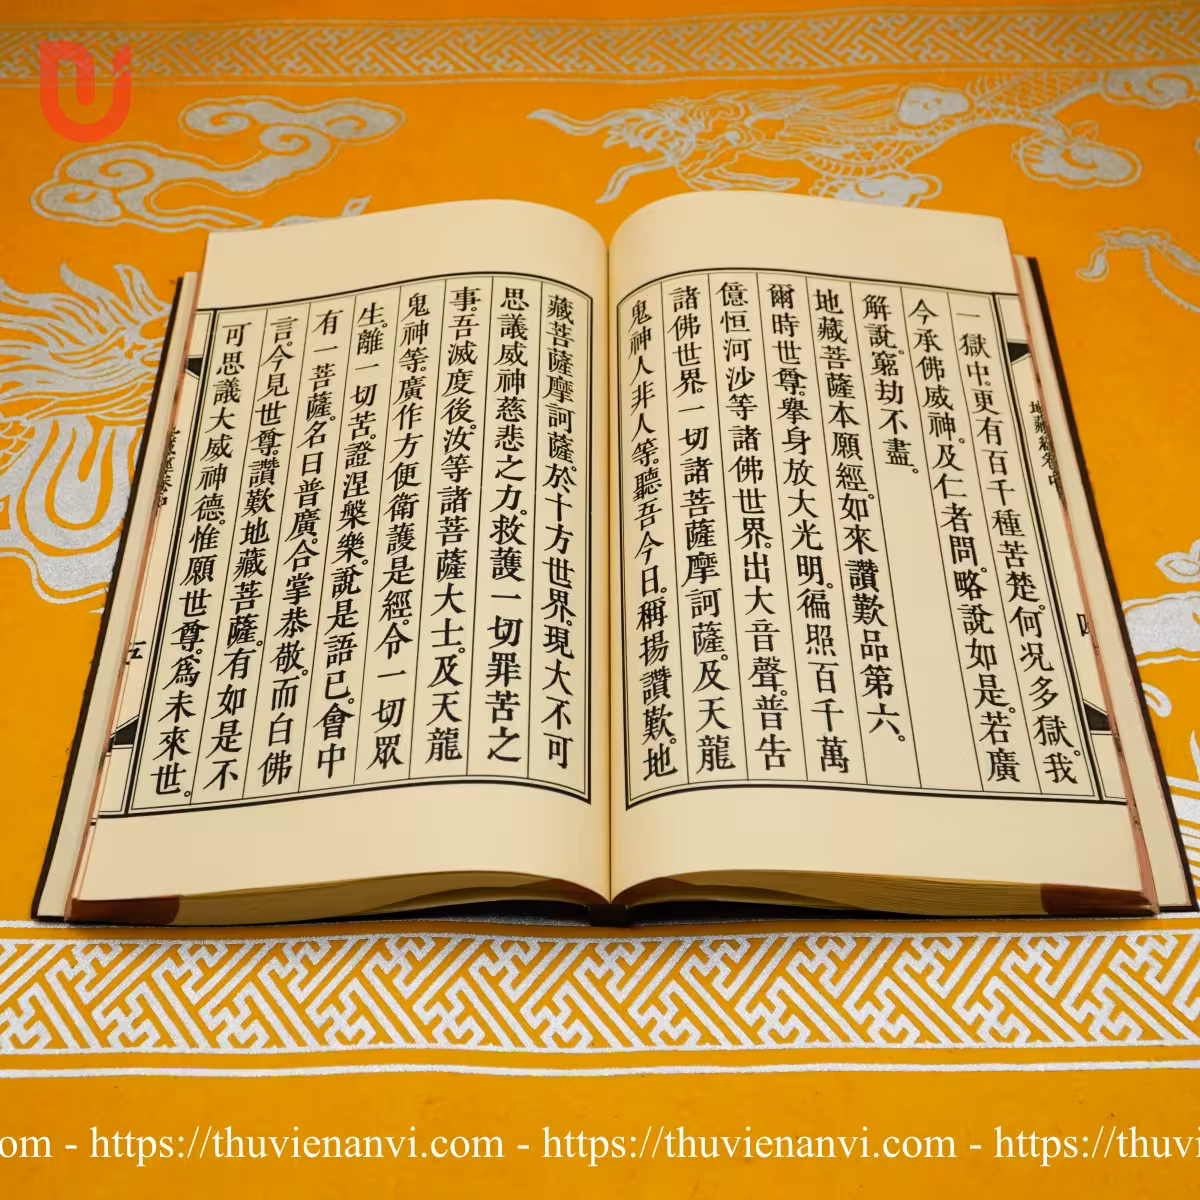 地藏經卷中
四
一獄中。更有百千種苦楚。何况多獄。我
今承佛威神。及仁者問。略說如是。若廣
解說。窮劫不盡。
地藏菩薩本願經。如來讚歎品第六。
爾時世尊。舉身放大光明。徧照百千萬
億恒河沙等諸佛世界。出大音聲。普告
諸佛世界。一切諸菩薩摩訶薩。及天龍
鬼神人非人等。聽吾今日。稱揚讚歎。地
藏菩薩摩訶薩。於十方世界。現大不可
思議威神慈悲之力。救護一切罪苦之
事。吾滅度後。汝等諸菩薩大士。及天龍
鬼神等。廣作方便衛護是經。令一切眾
生。離一切苦。證涅槃樂。說是語已。會中
有一菩薩。名曰普廣。合掌恭敬。而白佛
言。今見世尊。讚歎地藏菩薩。有如是不
可思議大威神德。惟願世尊。爲未來世。
五
om - https://thuvienanvi.com - https://thuvienanvi.com - https://thuvi